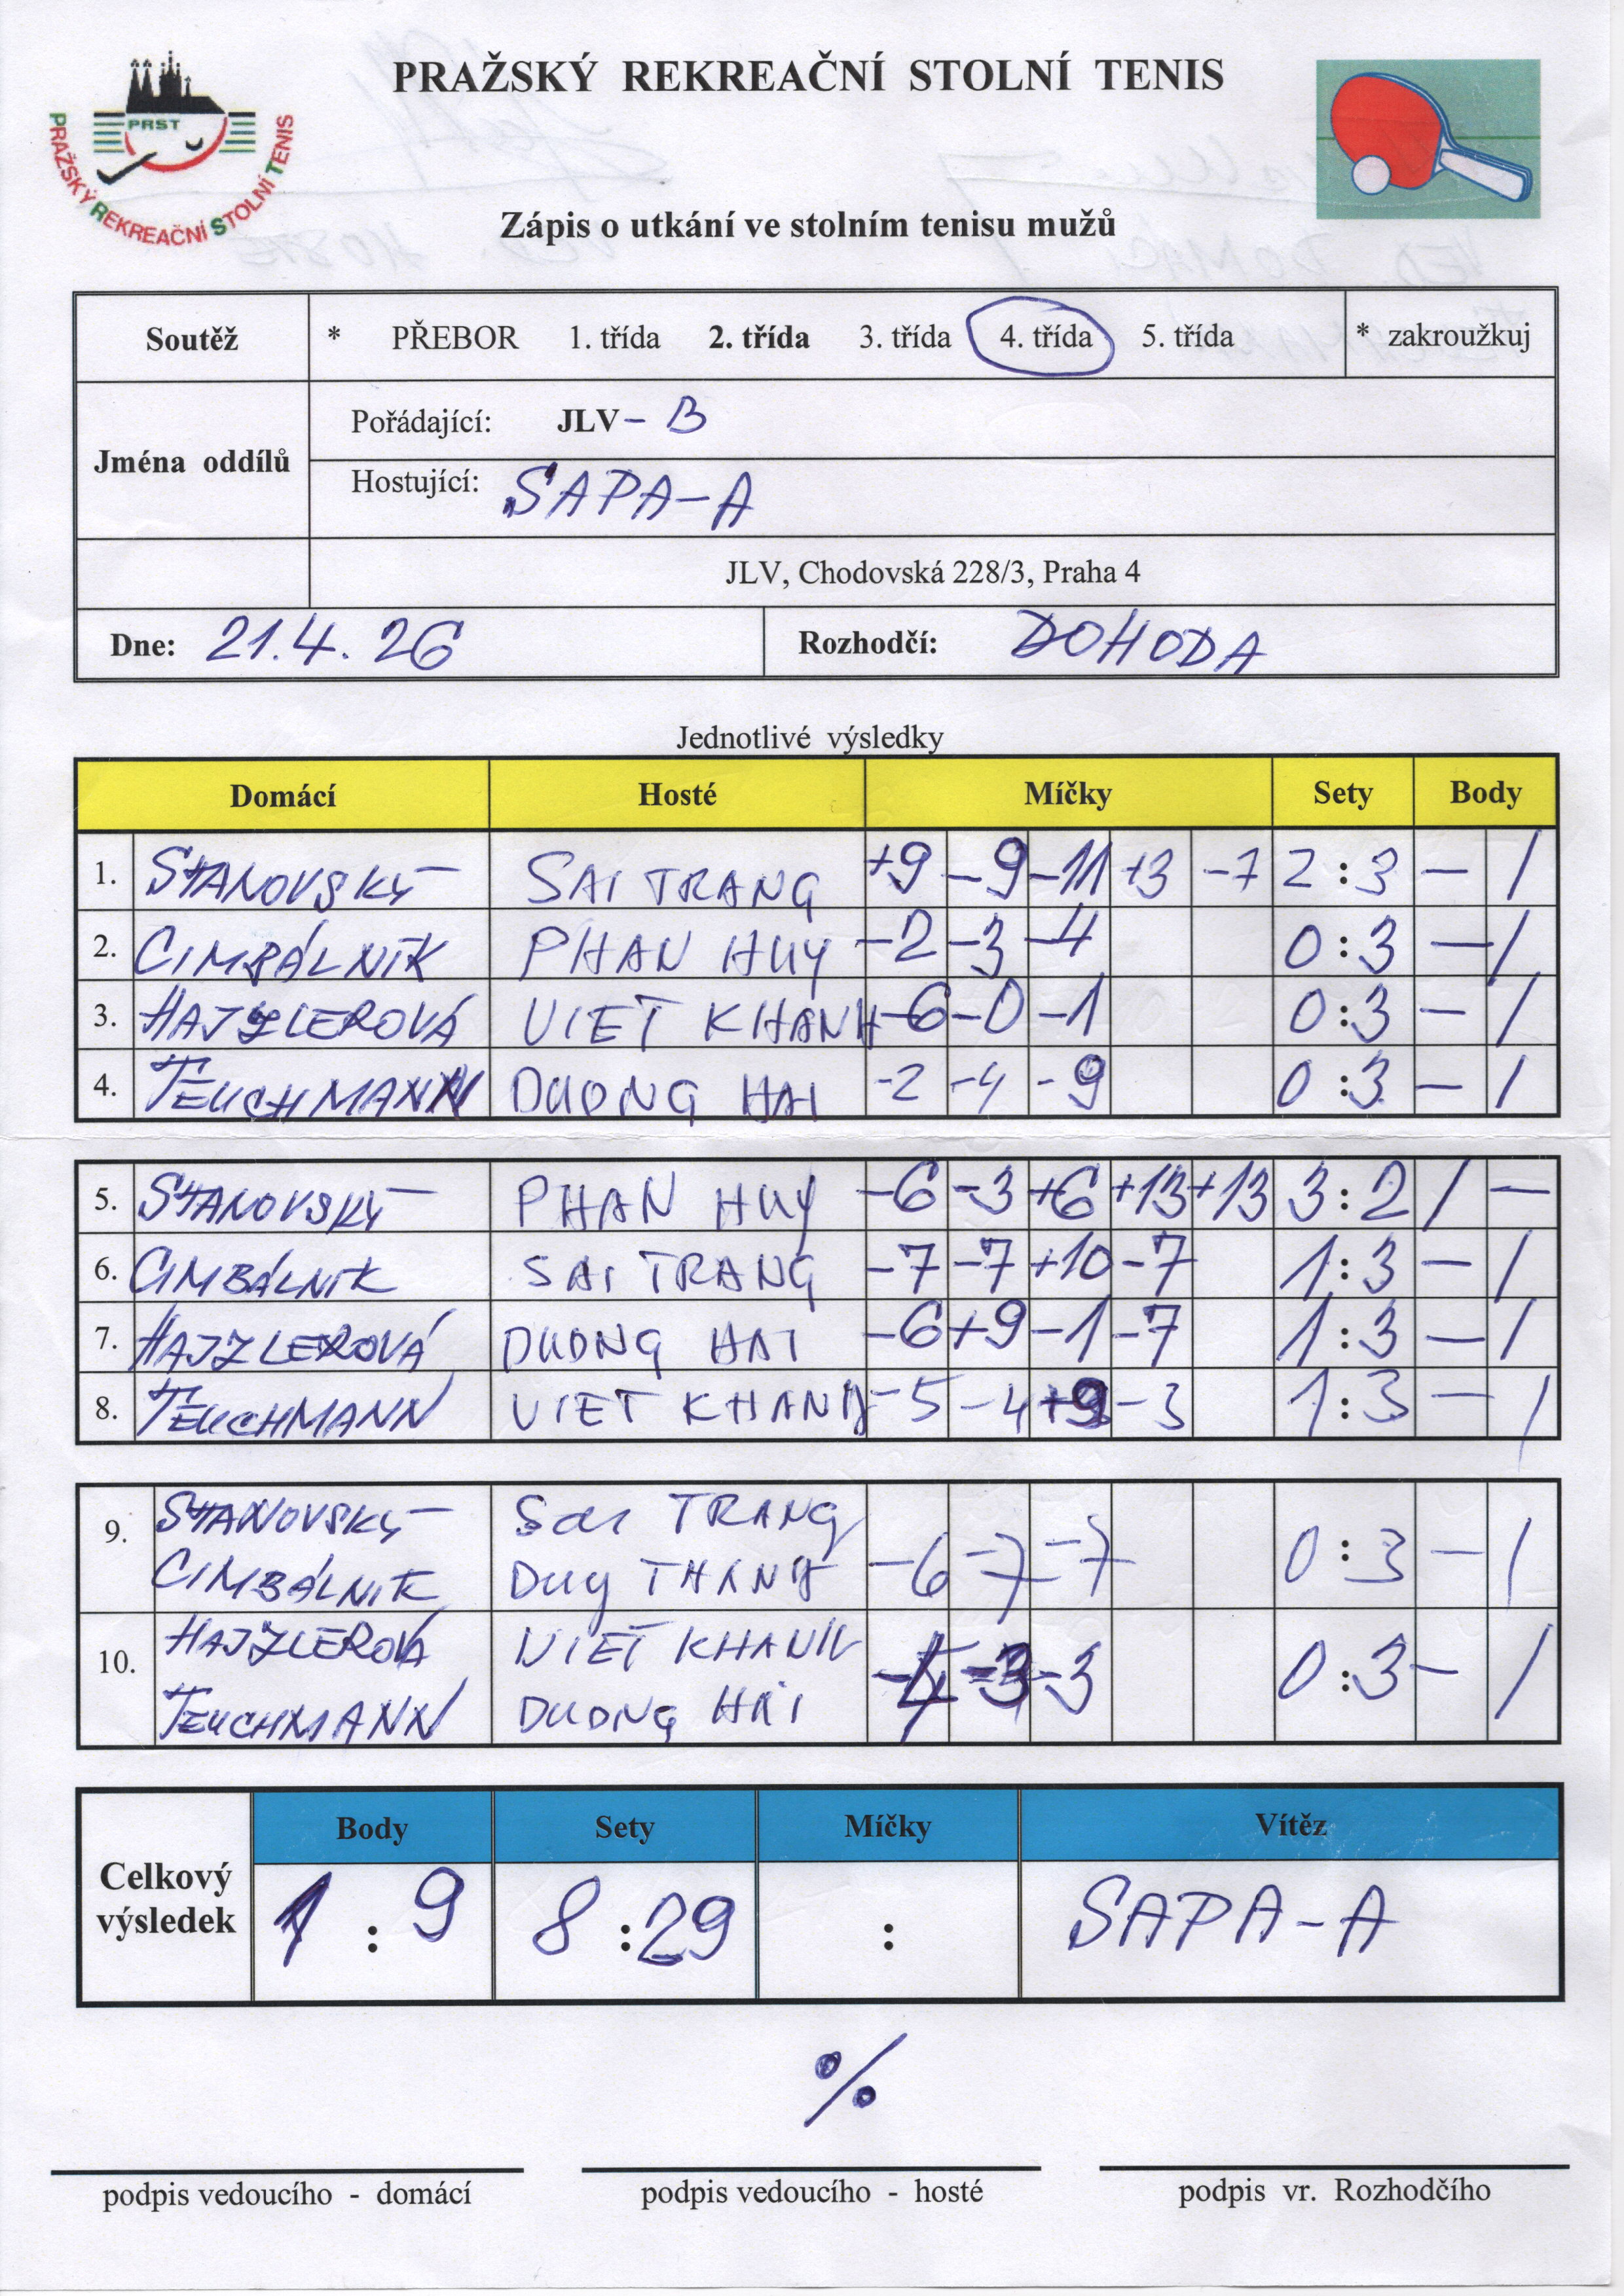 PRAŽSKÝ REKREAČNÍ STOLNÍ TENIS
PRST
PRAŽSKÝ REKREAČNÍ STOLNÍ TENIS
Zápis o utkání ve stolním tenisu mužů
Soutěž * PŘEBOR 1. třída 2. třída 3. třída 4. třída 5. třída * zakroužkuj
Jména oddílů
Pořádající: JLV - B
Hostující: SAPA-A
JLV, Chodovská 228/3, Praha 4
Dne: 21.4.26 Rozhodčí: DOHODA
Jednotlivé výsledky
Domácí Hosté Míčky Sety Body
1. STANOVSKÝ SAI TRANG +9 -9 -11 +3 -7 2:3 - 1
2. CIMBÁLNÍK PHAN HUY -2 -3 -4 0:3 - 1
3. HAJZLEROVÁ VIET KHANH -6 -0 -1 0:3 - 1
4. TEUCHMANN DUONG HAI -2 -4 -9 0:3 - 1
5. STANOVSKÝ PHAN HUY -6 -3 +6 +13 +13 3:2 1 -
6. CIMBÁLNÍK SAI TRANG -7 -7 +10 -7 1:3 - 1
7. HAJZLEROVÁ DUONG HAI -6 +9 -1 -7 1:3 - 1
8. TEUCHMANN VIET KHANH -5 -4 +9 -3 1:3 - 1
9. STANOVSKÝ Sai TRANG
CIMBÁLNÍK Duy THANH -6 -7 -7 0:3 - 1
10. HAJZLEROVÁ VIET KHANH
TEUCHMANN DUONG HAI -3 -3 0:3 - 1
Celkový výsledek
Body Sety Míčky Vítěz
1 : 9 8 : 29 : SAPA-A
%
podpis vedoucího - domácí podpis vedoucího - hosté podpis vr. Rozhodčího